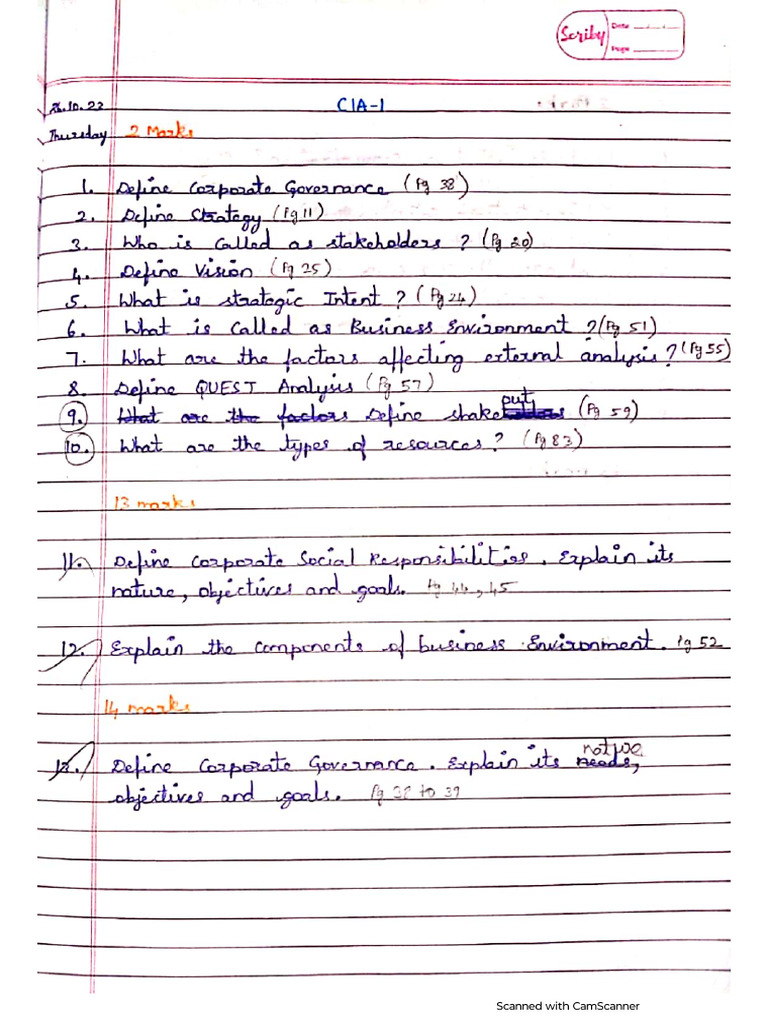 Scriby Date
Page
CIA-1
Thursday 2 Marks
1. Define Corporate Governance (Pg 38)
2. Define Strategy (Pg 11)
3. Who is called as stakeholders ? (Pg 20)
4. Define Vision (Pg 25)
5. What is strategic Intent ? (Pg 24)
6. What is called as Business Environment ? (Pg 51)
7. What are the factors affecting external analysis ? (Pg 55)
8. Define QUEST Analysis (Pg 57)
put
9. What are the factors Define shake (Pg 59)
10. What are the types of resources ? (Pg 83)
13 marks
11. Define Corporate Social Responsibilities. Explain its
nature, objectives and goals. Pg 44, 45
12. Explain the components of business Environment. Pg 52
14 marks
13. Define Corporate Governance. Explain its needs,
objectives and goals. Pg to 39
Scanned with CamScanner